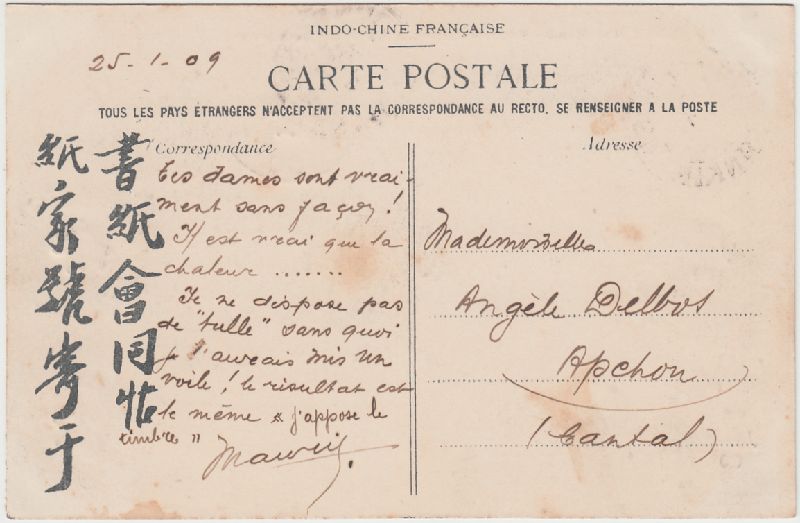 INDO-CHINE FRANÇAISE
25-1-09
CARTE POSTALE
TOUS LES PAYS ÉTRANGERS N'ACCEPTENT PAS LA CORRESPONDANCE AU RECTO. SE RENSEIGNER A LA POSTE
Correspondance
Ces dames sont vrai-
ment sans façon !
Il est vrai que la
chaleur .......
Je ne dispose pas
de "tulle" sans quoi
je l'aurais mis un
voile ! le résultat est
le même « j'appose le
timbre »
Adresse
Mademoiselle
Angèle Delbos
Apchon
(Cantal)
書紙會同
紙家號寄于